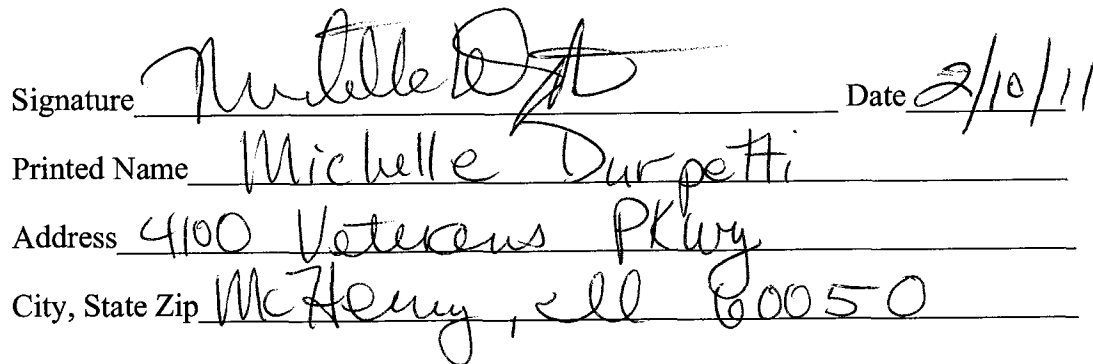 Signature Michelle Date 2/10/11
Printed Name Michelle Durpetti
Address 4100 Veterans PKwy
City, State Zip McHenry, Ill 60050